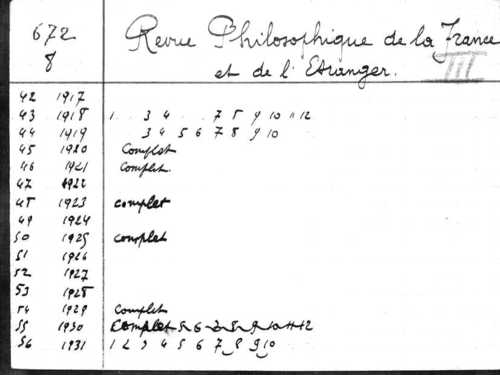 672
8
Revue Philosophique de la France
et de l'Etranger.
III
42 1917
43 1918 1 3 4 7 8 9 10 11 12
44 1919 3 4 5 6 7 8 9 10
45 1920 Complet
46 1921 Complet.
47 1922
48 1923 complet
49 1924
50 1925 complet
51 1926
52 1927
53 1928
54 1929 Complet
55 1930 Complet 5 6 7 8 9 10 11 12
56 1931 1 2 3 4 5 6 7 8 9 10